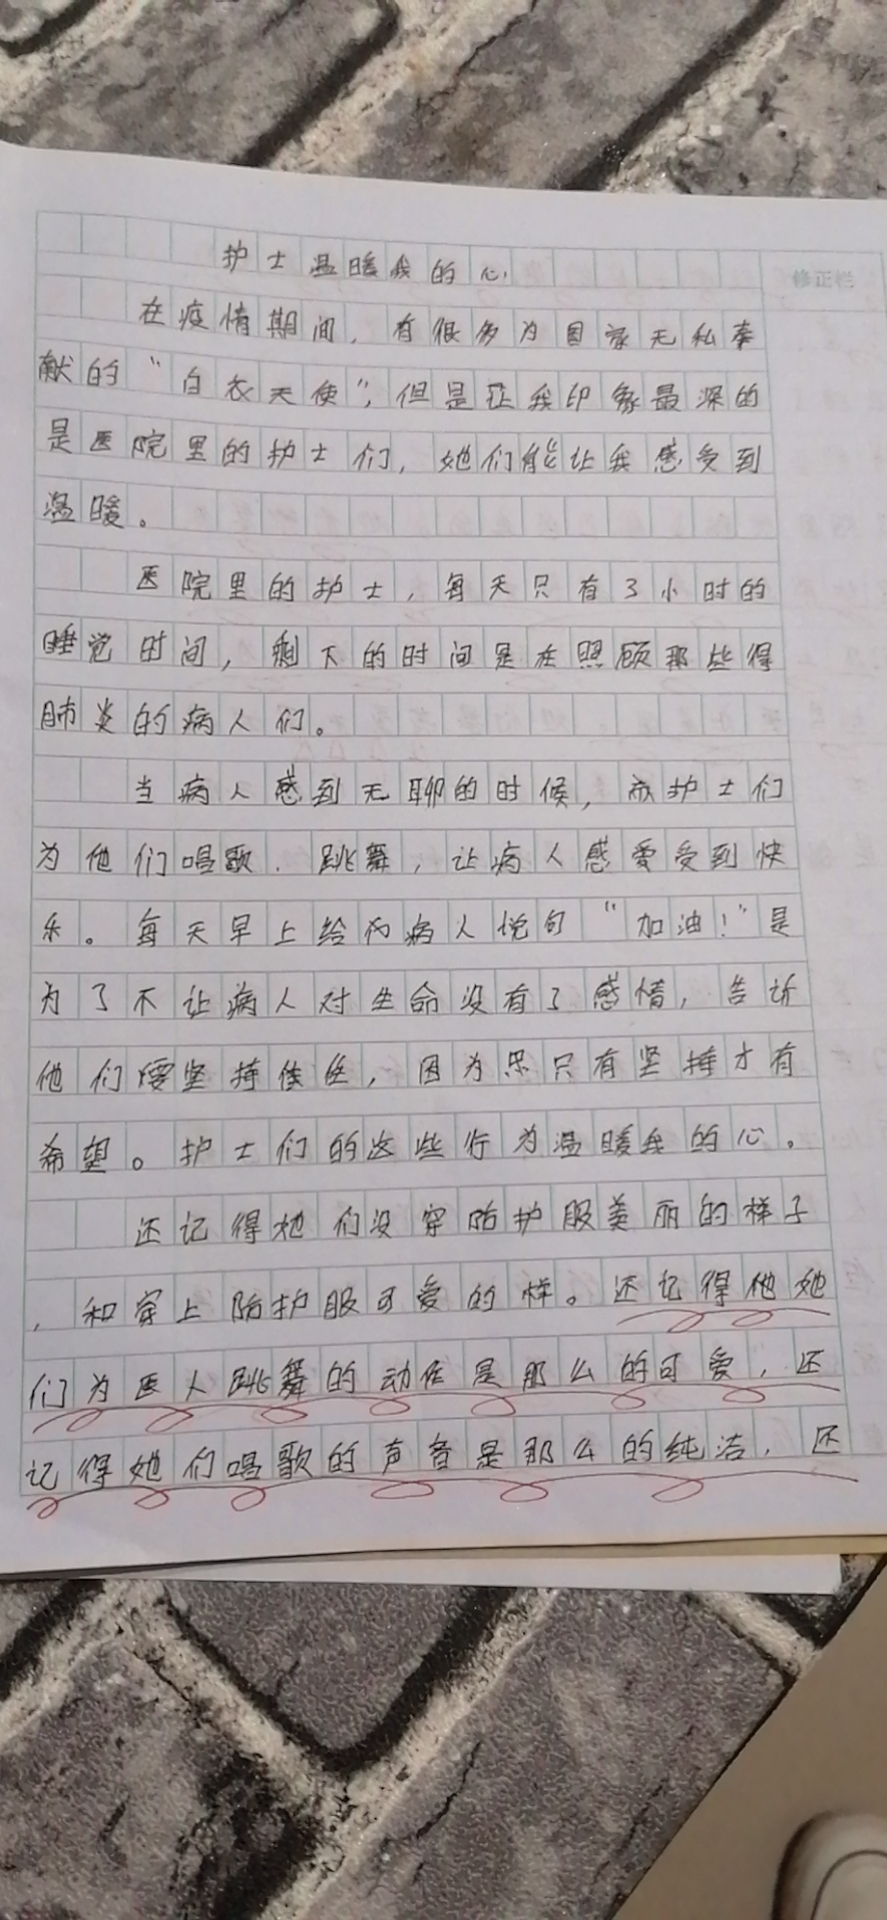 护士温暖我的心
修正栏
在疫情期间，有很多为国家无私奉
献的“白衣天使”，但是让我印象最深的
是医院里的护士们，她们能让我感受到
温暖。
医院里的护士，每天只有3小时的
睡觉时间，剩下的时间是在照顾那些得
肺炎的病人们。
当病人感到无聊的时候，护士们
为他们唱歌．跳舞，让病人感爱受到快
乐。每天早上给病人说句“加油！”是
为了不让病人对生命没有了感情，告诉
他们要坚持住，因为只有坚持才有
希望。护士们的这些行为温暖我的心。
还记得她们没穿防护服美丽的样子
，和穿上防护服可爱的样。还记得他她
们为医人跳舞的动作是那么的可爱，还
记得她们唱歌的声音是那么的纯洁，还